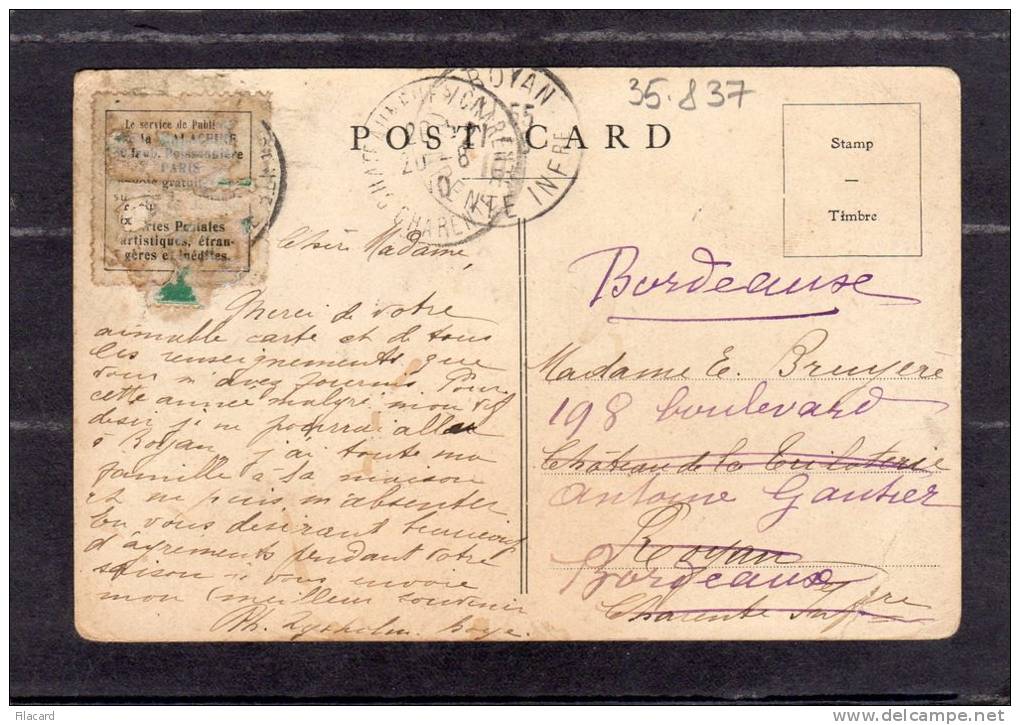 35.837
POST CARD
Stamp
Timbre
ROYAN
CHARENTE INFRE
Le service de
PARIS
gratuit
Cartes Postales
artistiques, étran-
gères et inédites.
Chère Madame,
Merci de votre
aimable carte et de tous
les renseignements que
vous m'avez fournis Pour
cette année malgré mon vif
désir je ne pourrai aller
à Royan j'ai toute ma
famille à la maison
et ne puis m'absenter
En vous désirant beaucoup
d'agréments pendant votre
saison je vous envoie
mon meilleur souvenir
Bordeaux
Madame E. Bruyère
198 boulevard
Château de la
Antoine Gautier
Royan
Bordeaux
Charente Infre
Filacard
delcampe.net